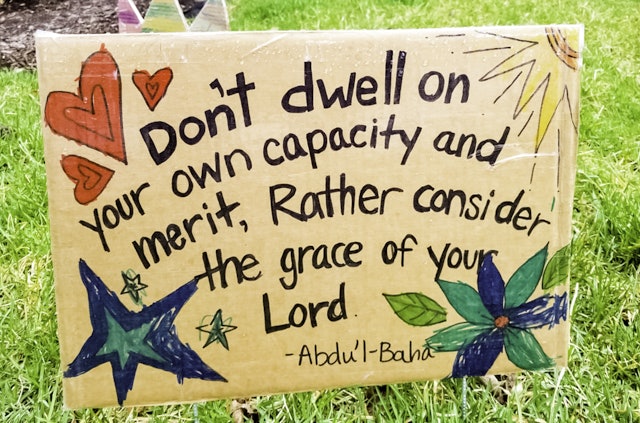 Don't dwell on
your own capacity and
merit, Rather consider
the grace of your
Lord.
-Abdu'l-Baha